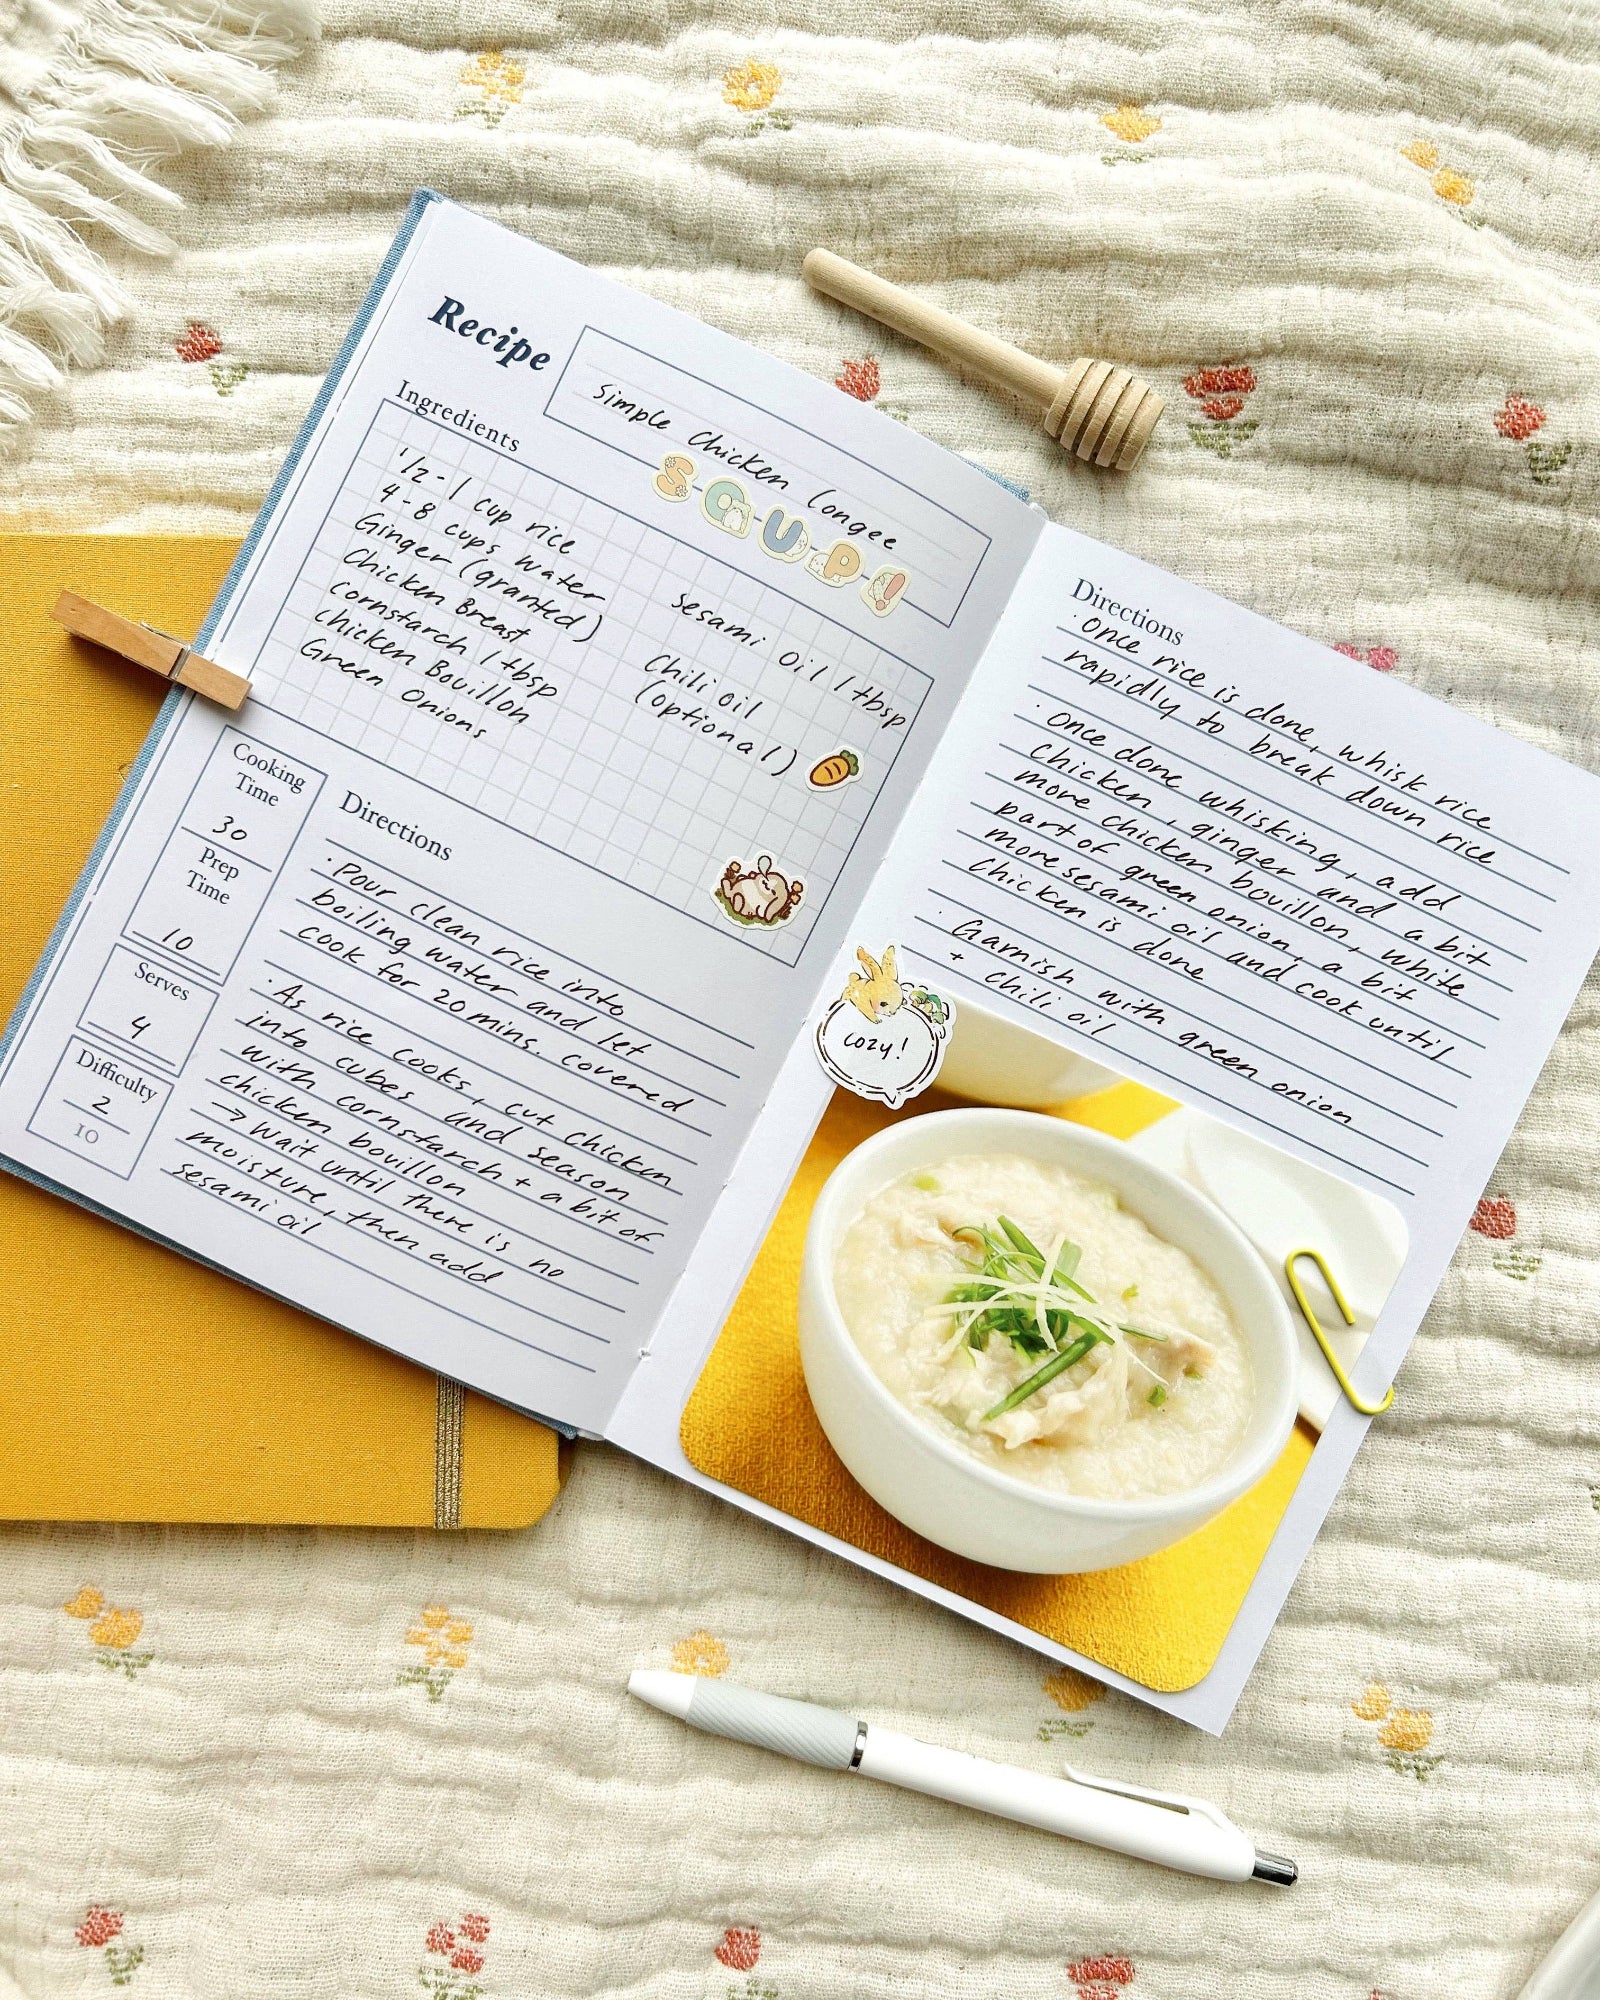 Recipe
Simple Chicken Congee
SOUP!
Ingredients
1/2 - 1 cup rice
4 - 8 cups water
Ginger (granted)
Chicken Breast
cornstarch 1 tbsp
chicken Bouillon
Green Onions
Sesami Oil 1 tbsp
Chili oil
(optional)
Cooking
Time
30
Prep
Time
10
Serves
4
Difficulty
2
10
Directions
· Pour clean rice into
boiling water and let
cook for 20 mins. covered
· As rice cooks, cut chicken
into cubes and season
with cornstarch + a bit of
chicken bouillon
→ wait until there is no
moisture, then add
sesami oil
Directions
· Once rice is done, whisk rice
rapidly to break down rice
· Once done whisking, add
Chicken, ginger and a bit
more chicken bouillon, white
part of green onion, a bit
more sesami oil and cook until
Chicken is done
· Garnish with green onion
+ chili oil
cozy!